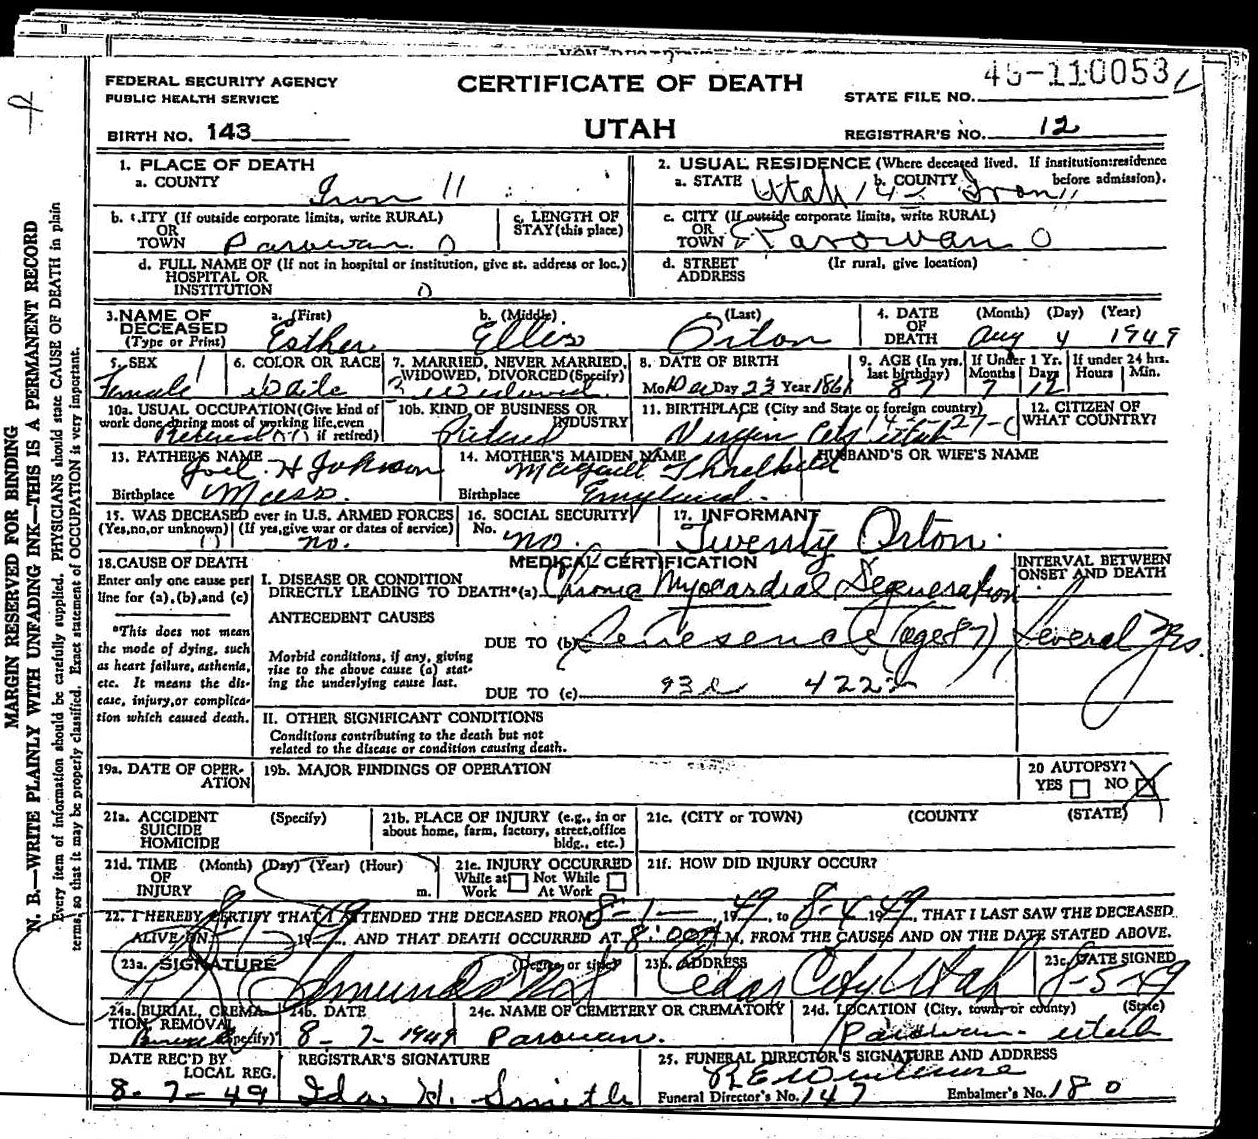 45-110053
FEDERAL SECURITY AGENCY
PUBLIC HEALTH SERVICE
CERTIFICATE OF DEATH
STATE FILE NO.
BIRTH NO. 143
UTAH
REGISTRAR'S NO. 12
1. PLACE OF DEATH
a. COUNTY Iron 11
2. USUAL RESIDENCE (Where deceased lived. If institution:residence before admission).
a. STATE Utah b. COUNTY Iron 11
b. CITY (If outside corporate limits, write RURAL)
OR
TOWN Parowan 0
c. LENGTH OF
STAY (this place)
c. CITY (If outside corporate limits, write RURAL)
OR
TOWN Parowan 0
d. FULL NAME OF (If not in hospital or institution, give st. address or loc.)
HOSPITAL OR
INSTITUTION 0
d. STREET (If rural, give location)
ADDRESS
3. NAME OF DECEASED (Type or Print)
a. (First) Esther
b. (Middle) Ellis
c. (Last) Orton
4. DATE OF DEATH (Month) (Day) (Year)
Aug 4 1949
5. SEX 1
Female
6. COLOR OR RACE
White
7. MARRIED, NEVER MARRIED, WIDOWED, DIVORCED (Specify)
3 Widowed
8. DATE OF BIRTH
Mo. Dec Day 23 Year 1861
9. AGE (In yrs. last birthday) 87
If Under 1 Yr. Months 7 Days 12
If under 24 hrs. Hours Min.
10a. USUAL OCCUPATION (Give kind of work done during most of working life, even if retired)
Retired
10b. KIND OF BUSINESS OR INDUSTRY
Retired
11. BIRTHPLACE (City and State or foreign country)
Virgin City Utah
12. CITIZEN OF WHAT COUNTRY?
13. FATHER'S NAME
Joel H Johnson
Birthplace Mass.
14. MOTHER'S MAIDEN NAME
Margaret Threlkeld
Birthplace England.
HUSBAND'S OR WIFE'S NAME
15. WAS DECEASED ever in U.S. ARMED FORCES
(Yes, no, or unknown) (If yes, give war or dates of service)
no.
16. SOCIAL SECURITY
No. no.
17. INFORMANT
Twenty Orton.
18. CAUSE OF DEATH
Enter only one cause per line for (a), (b), and (c)
MEDICAL CERTIFICATION
INTERVAL BETWEEN ONSET AND DEATH
I. DISEASE OR CONDITION
DIRECTLY LEADING TO DEATH*(a) Chronic Myocardial Degeneration
ANTECEDENT CAUSES
DUE TO (b) Senesence (age 87) Several Yrs.
*This does not mean the mode of dying, such as heart failure, asthenia, etc. It means the disease, injury, or complication which caused death.
Morbid conditions, if any, giving rise to the above cause (a) stating the underlying cause last.
DUE TO (c) 93d 422
II. OTHER SIGNIFICANT CONDITIONS
Conditions contributing to the death but not related to the disease or condition causing death.
19a. DATE OF OPERATION
19b. MAJOR FINDINGS OF OPERATION
20 AUTOPSY?
YES NO X
21a. ACCIDENT (Specify)
SUICIDE
HOMICIDE
21b. PLACE OF INJURY (e.g., in or about home, farm, factory, street, office bldg., etc.)
21c. (CITY or TOWN) (COUNTY (STATE)
21d. TIME (Month) (Day) (Year) (Hour)
OF
INJURY m.
21e. INJURY OCCURRED
While at Work Not While At Work
21f. HOW DID INJURY OCCUR?
22. I HEREBY CERTIFY THAT I ATTENDED THE DECEASED FROM 8-1- , 1949, to 8-4 1949, THAT I LAST SAW THE DECEASED
ALIVE ON 1949, AND THAT DEATH OCCURRED AT 8:00 M. FROM THE CAUSES AND ON THE DATE STATED ABOVE.
23a. SIGNATURE (Degree or title)
23b. ADDRESS
Cedar City Utah
23c. DATE SIGNED
8-5-49
24a. BURIAL, CREMATION, REMOVAL (Specify)
24b. DATE
8-7-1949
24c. NAME OF CEMETERY OR CREMATORY
Parowan.
24d. LOCATION (City, town, or county) (State)
Parowan- Utah
DATE REC'D BY LOCAL REG.
8-7-49
REGISTRAR'S SIGNATURE
Ida H. Smith
25. FUNERAL DIRECTOR'S SIGNATURE AND ADDRESS
Funeral Director's No. 147 Embalmer's No. 180
MARGIN RESERVED FOR BINDING
N. B.—WRITE PLAINLY WITH UNFADING INK—THIS IS A PERMANENT RECORD
Every item of information should be carefully supplied. PHYSICIANS should state CAUSE OF DEATH in plain
terms, so that it may be properly classified. Exact statement of OCCUPATION is very important.